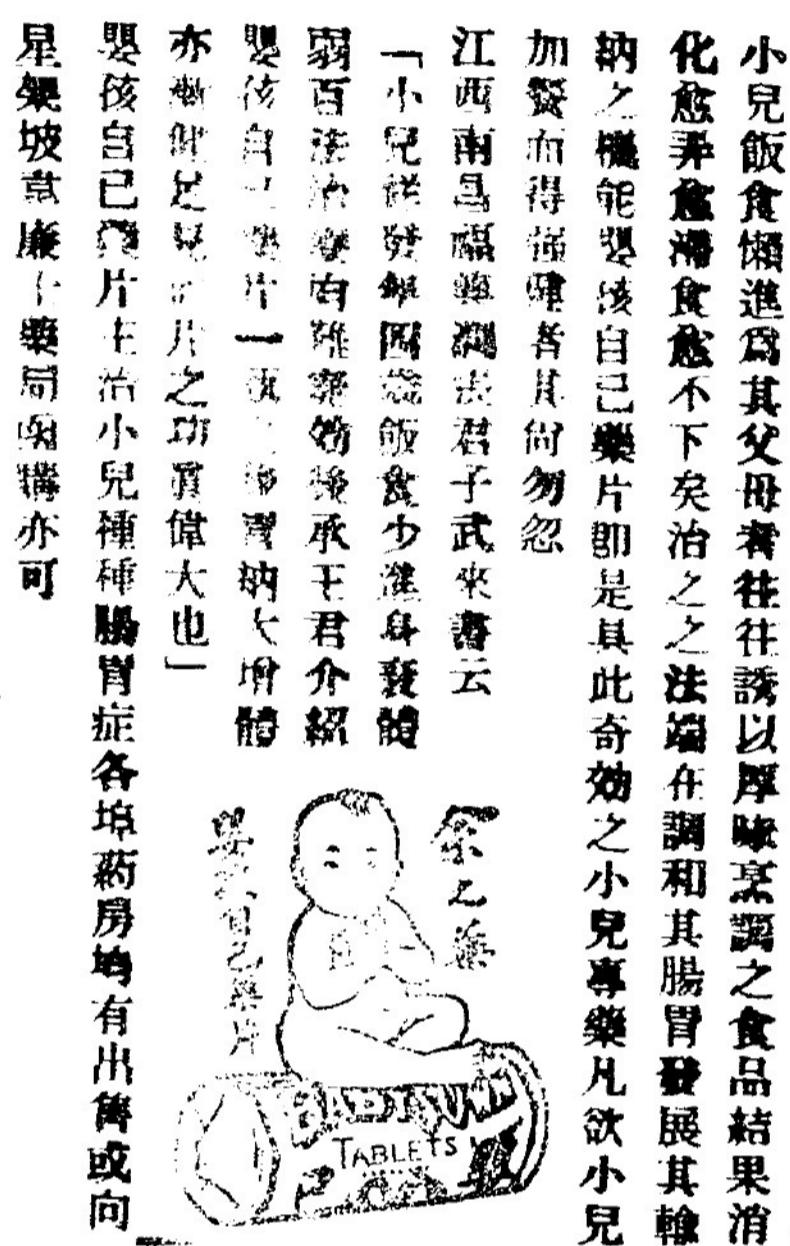 小兒飯食懶進爲其父母者往往誘以厚味烹調之食品結果消
化愈弄愈滯食愈不下矣治之之法端在調和其腸胃發展其輸
納之機能嬰孩自己藥片卽是具此奇効之小兒專藥凡欲小兒
加餐而得強健者其尙勿忽
江西南昌福潤君子武來書云
「小兒祥發年四歲飯食少進身衰體
弱百法治療百難奏効後承王君介紹
嬰孩自己藥片一試之後胃納大增體
亦漸健足見此片之功眞偉大也」
嬰孩自己藥片主治小兒種種腸胃症各埠葯房均有出售或向
星架坡韋廉士藥局函購亦可
余之藥
嬰孩自己藥片
BABY'S OWN
TABLETS